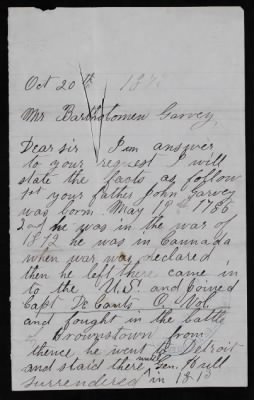 Oct 20th 187
Mr Bartholomen Garvey
Dear sir I am answer
to your request I will
state the facts as follow
1st your father John Garvey
was born May 12th 1786
2nd he was in the war of
1812 he was in Cannada
when war was declared
then he left there came in
to the U.S. and Joined
Capt De Cants. C. Vol
and fought in the battle
Brownstown from
thence he went to Detroit
and staid there until Gen. Hull
surrendered in 1813